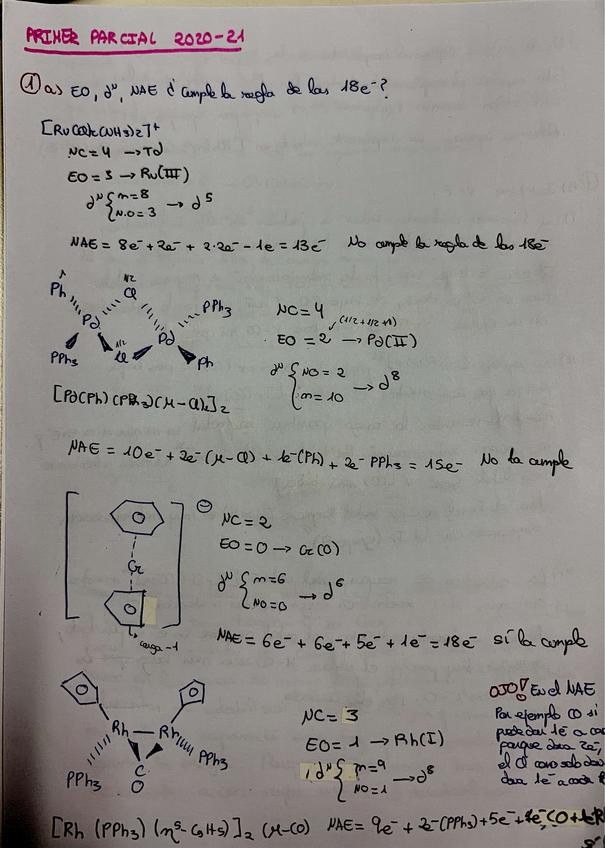 PRIMER PARCIAL 2020-21
① a) EO, dⁿ, NAE ¿ cumple la regla de las 18e⁻?
NC = 4 → Td
EO = 3 → Ru(III)
dⁿ { m=8 N.O=3 → d⁵
NAE = 8e⁻ + 2e⁻ + 2·2e⁻ - 1e = 13e⁻ No cumple la regla de las 18e⁻
Ph Cl 1/2 PPh₃
Pd Pd
PPh₃ 1/2 Cl Ph
NC = 4
(1/2 + 1/2 + 1)
EO = 2 → Pd(II)
dⁿ { NO = 2 m = 10 → d⁸
[Pd(Ph)(PPh₃)(μ-Cl)]₂
NAE = 10e⁻ + 2e⁻ (μ-Cl) + 1e⁻ (Ph) + 2e⁻ PPh₃ = 15e⁻ No la cumple
Cr
carga -1
NC = 2
EO = 0 → Cr(0)
dⁿ { m=6 NO=0 → d⁶
NAE = 6e⁻ + 6e⁻ + 5e⁻ + 1e⁻ = 18e⁻ sí la cumple
Rh — Rh
PPh₃ C O PPh₃
NC = 3
EO = 1 → Rh(I)
dⁿ { m=9 NO=1 → d⁸
OJO! En el NAE
Por ejemplo CO si
puede dar 1e⁻ a
porque dona 2e⁻,
el Cl como solo
dona 1e⁻ a cada
[Rh (PPh₃) (η⁵-C₅H₅)]₂ (μ-CO) NAE = 9e⁻ + 2e⁻(PPh₃) + 5e⁻ + 1e⁻ CO +